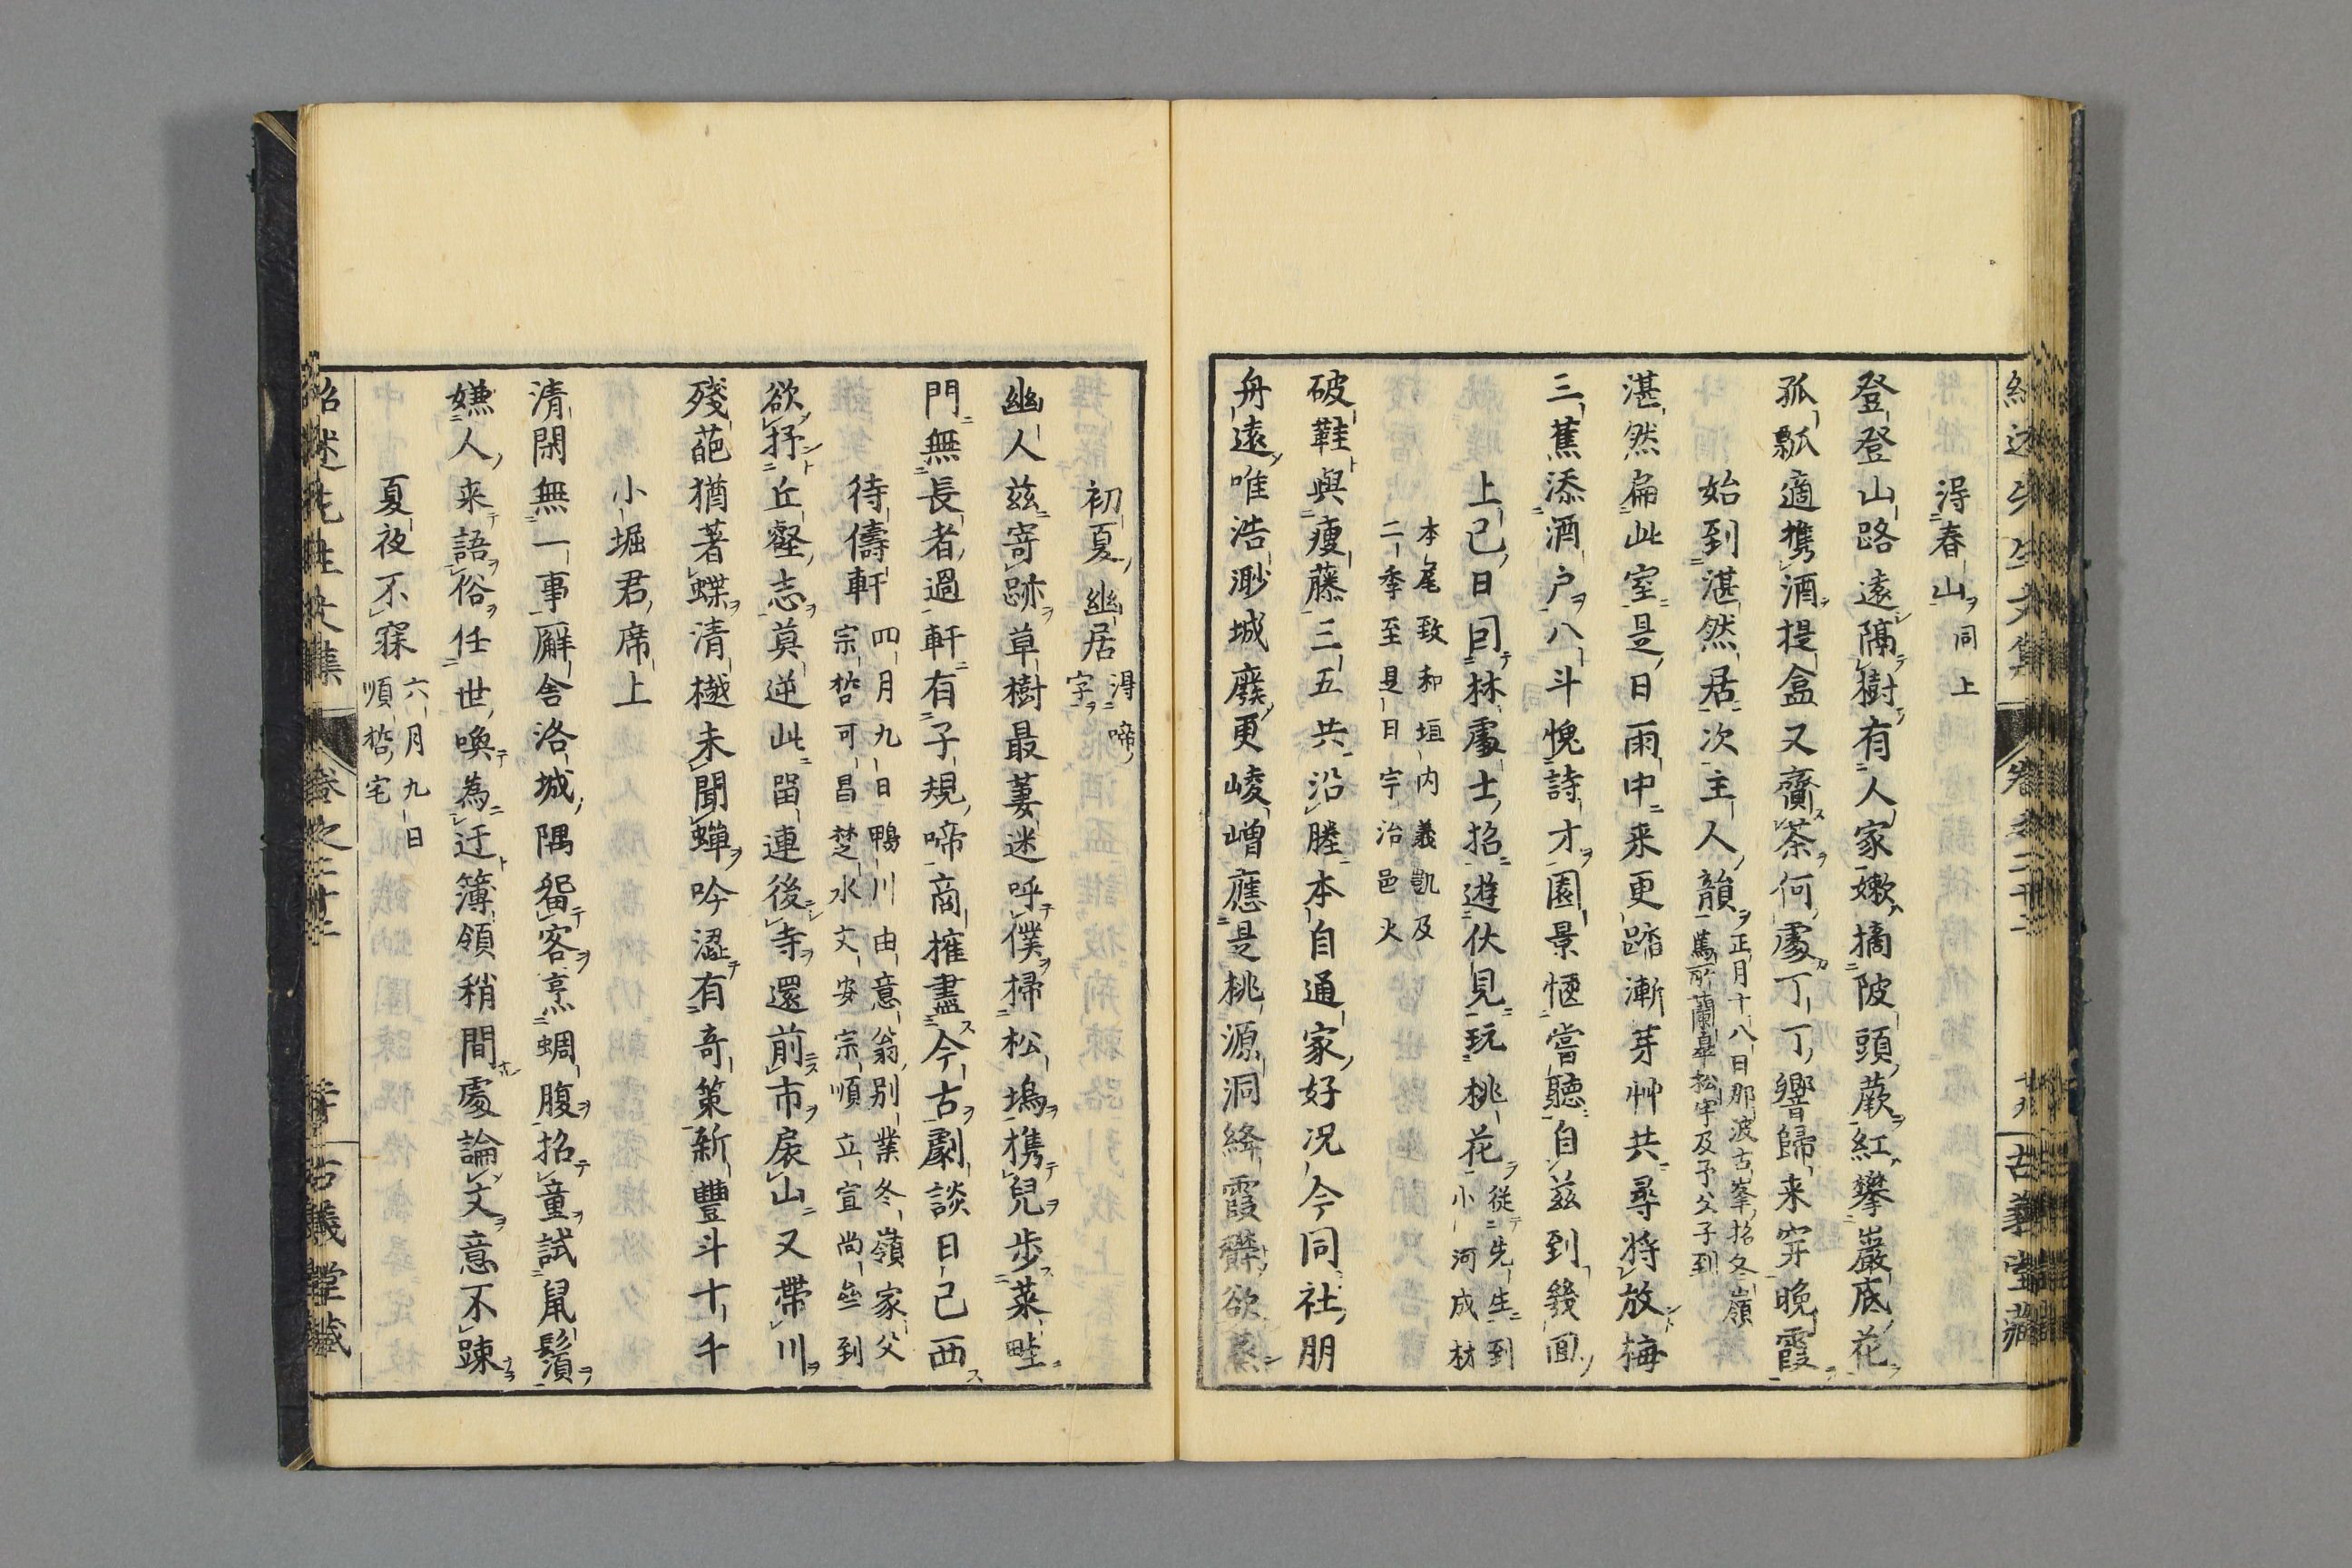 得春山 同上
登登山路遠隔樹有人家嫩摘陂頭蕨紅攀巖底花
孤瓢適携酒提盒又齎茶何處丁丁響歸来穿晩霞
始到湛然居次主人韻 正月十八日那波古峯招冬嶺
蘭皐松宇及予父子到
湛然扁此室是日雨中来更踏漸芽艸共尋將放梅
三蕉添酒户八斗愧詩才園景愜嘗聽自茲到幾囬
上巳日囘林處士招遊伏見玩桃花 從先生到
小河成材
本尾致和垣内義凱及
二季至是日宇治邑火
破鞋與痩藤三五共沿塍本自通家好况今同社朋
舟遠唯浩渺城廢更崚嶒應是桃源洞絳霞欝欲蒸
紹述先生文集 卷之二十二 廿九 古義堂藏
初夏幽居 得啼
字
幽人茲寄跡草樹最萋迷呼僕掃松塢携兒歩菜畦
門無長者過軒有子規啼商搉盡今古劇談日已西
待儔軒 四月九日鴨川由意翁别業冬嶺家父
宗哲可昌楚水丈安宗順立宣尚㕘到
欲抒丘壑志莫逆此畱連後寺還前市扆山又帶川
殘葩猶著蝶清樾未聞蟬吟澀有奇策新豐斗十千
小堀君席上
清閑無一事廨舍洛城隅畱客烹蜩腹招童試鼠鬚
嫌人来語俗任世喚為迂簿領稍間處論文意不踈
夏夜不寐 六月九日
順哲宅
紹述先生文集 卷之二十二 三十 古義堂藏